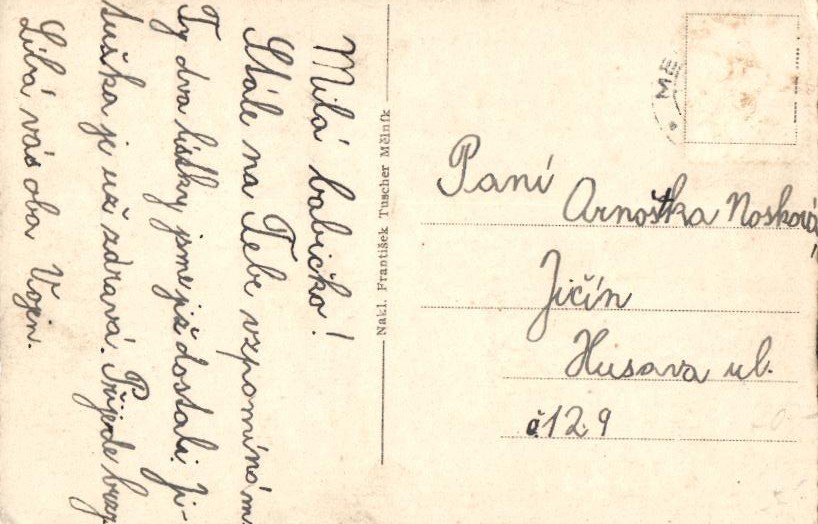 Milá babičko!
Stále na Tebe vzpomínám
Ty dva lístky jsme již dostali. Ji-
tuška je už zdravá. Přijede brzy
Líbá vás oba Vojen.
Nakl. František Tuscher Mělník
MĚ
Paní
Arnoštka Nosková
Jičín
Husova ul.
č 129